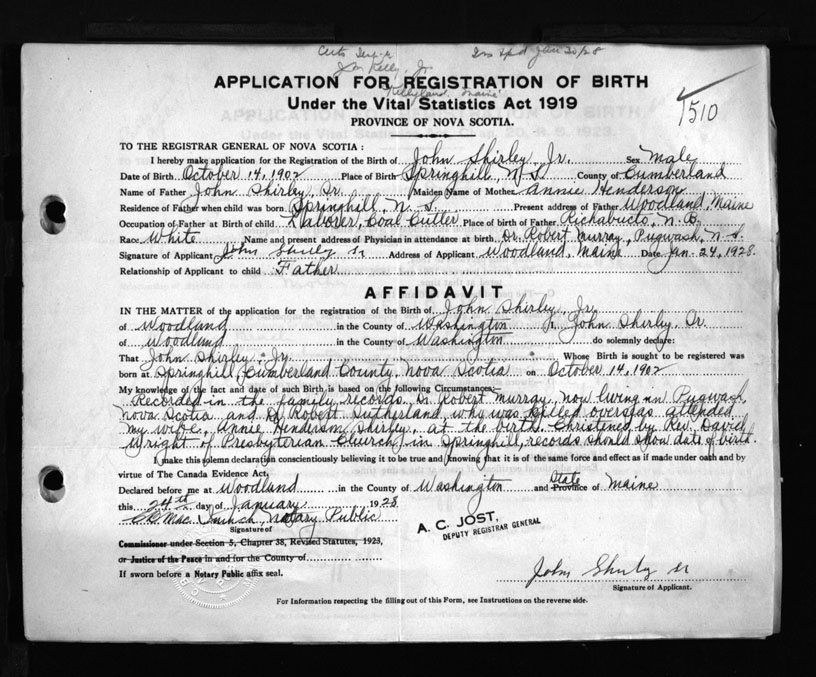 Jan 20/28
Jr.
APPLICATION FOR REGISTRATION OF BIRTH
Maine
Under the Vital Statistics Act 1919
1510
PROVINCE OF NOVA SCOTIA.
TO THE REGISTRAR GENERAL OF NOVA SCOTIA:
I hereby make application for the Registration of the Birth of John Shirley, Jr. Sex Male
Date of Birth October 14, 1902 Place of Birth Springhill, N.S. County of Cumberland
Name of Father John Shirley, Sr. Maiden Name of Mother Annie Henderson
Residence of Father when child was born Springhill, N. S. Present address of Father Woodland, Maine
Occupation of Father at Birth of child Laborer, Coal Cutter Place of birth of Father Richabucto, N.B.
Race White Name and present address of Physician in attendance at birth Dr. Robert Murray, Pugwash, N.S.
Signature of Applicant John Shirly Sr Address of Applicant Woodland, Maine Date Jan-24, 1928.
Relationship of Applicant to child Father
AFFIDAVIT
IN THE MATTER of the application for the registration of the Birth of John Shirley, Jr.
of Woodland in the County of Washington I, John Shirley, Sr.
of Woodland in the County of Washington do solemnly declare:
That John Shirley, Jr. Whose Birth is sought to be registered was
born at Springhill, Cumberland County, Nova Scotia on October 14, 1902
My knowledge of the fact and date of such Birth is based on the following Circumstances:—
Recorded in the family records. Dr. Robert Murray, now living in Pugwash,
Nova Scotia and Dr. Robert Sutherland, why was killed overseas attended
my wife, Annie Henderson Shirley, at the birth. Christened by Rev. David
Wright of Presbyterian Church, in Springhill, records should show date of birth.
I make this solemn declaration conscientiously believing it to be true and knowing that it is of the same force and effect as if made under oath and by
virtue of The Canada Evidence Act.
Declared before me at Woodland in the County of Washington and State Province of Maine
this 24th day of January 1928
Notary Public
A. C. JOST,
DEPUTY REGISTRAR GENERAL
Signature of
Commissioner under Section 5, Chapter 38, Revised Statutes, 1923,
or Justice of the Peace in and for the County of
If sworn before a Notary Public affix seal.
John Shirly Sr
Signature of Applicant.
For Information respecting the filling out of this Form, see Instructions on the reverse side.